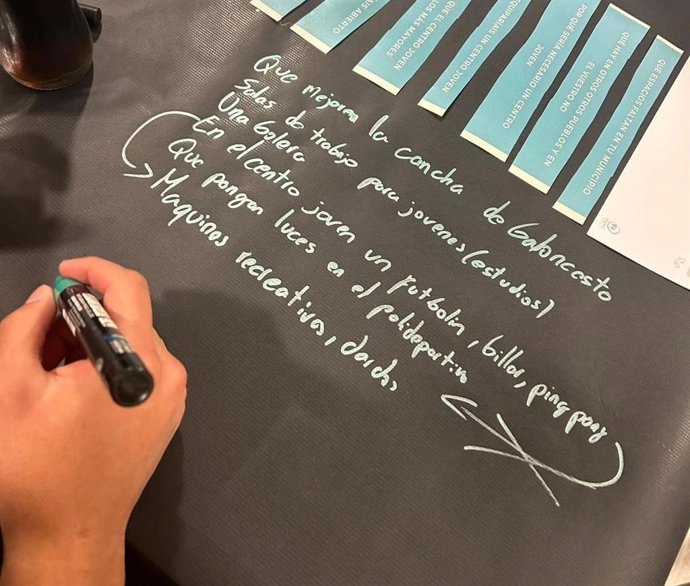 AIS ABIERTO
QUE EL CENTRO JOVEN
LOS MAS MAYORES
EQUIPARIAIS UN CENTRO JOVEN
POR QUE SERIA NECESARIO UN CENTRO
JOVEN
QUE HAY EN OTROS OTROS PUEBLOS Y EN
EL VUESTRO NO
QUE ESPACIOS FALTAN EN TU MUNICIPIO
Que mejoren la cancha de baloncesto
Salas de trabajo para jovenes (estudios)
Una bolera
En el centro joven un futbolin, billar, ping pong
Que pongan luces en el polideportivo
Maquinas recreativa, dardos